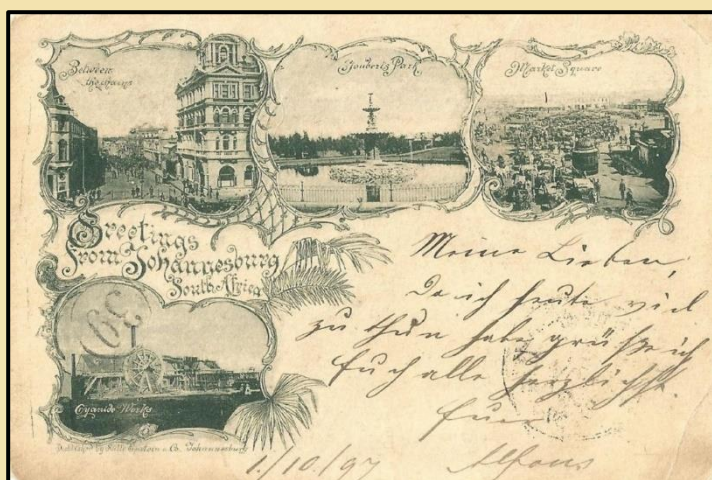 Between
the chains
Joubert's Park
Market Square
Greetings
from Johannesburg
South Africa
Cyanide Works
Published by Sallo Epstein & Co. Johannesburg
39
Meine Lieben,
Da ich heute viel
zu thun habe grüße ich
Euch alle herzlichst.
Euer
Alfons
1/10/97